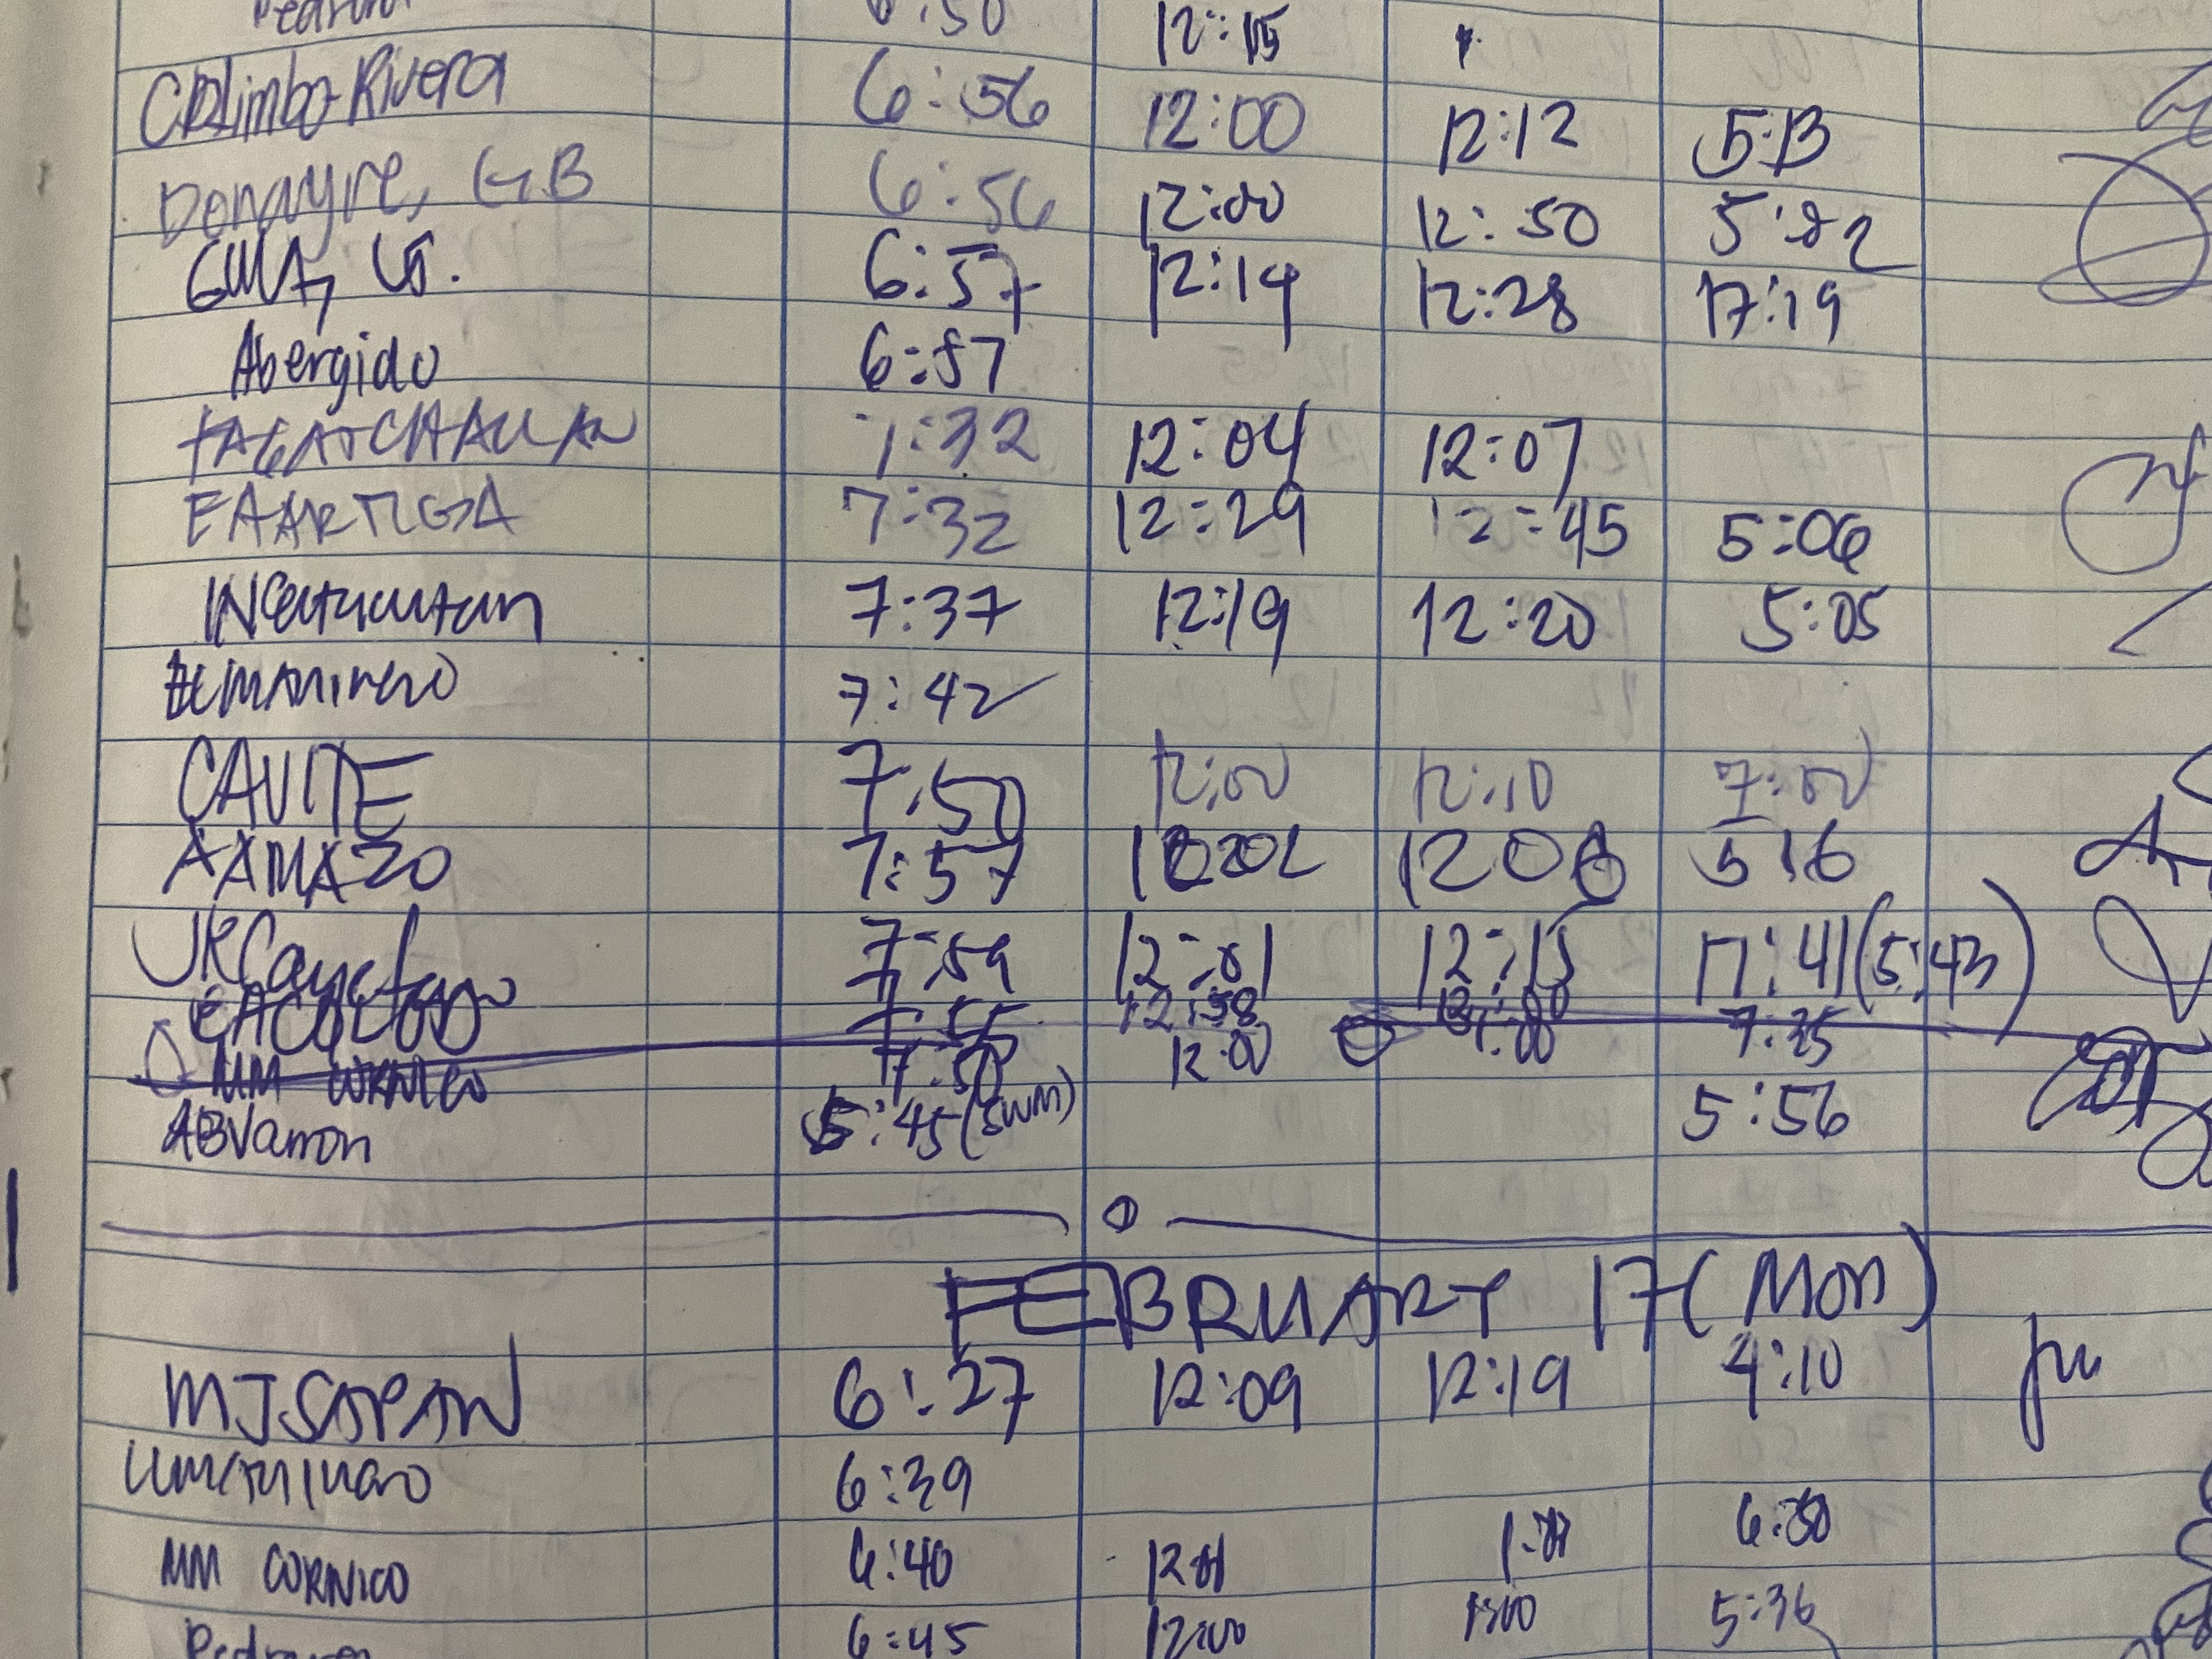 12:15
CDLimbo-Rivera 6:56 12:00 12:12 5:13
Donayre, GB 6:56 12:00 12:50 5:22
6:57 12:14 12:28 17:19
Abergido 6:57
7:32 12:04 12:07
EAARTIGA 7:32 12:29 12:45 5:06
7:37 12:19 12:20 5:05
7:42
CAVITE 7:50 12:00 12:10 7:00
AAMAZO 7:57 1202 1208 5:16
JRCayetano 7:59 12:01 12:13 17:41 (5:43)
12:58
MM CORNICO 7:50 12:00 1:00 7:35
ABVarron 5:45 (SWM) 5:56
FEBRUARY 17 (Mon)
MJSAPAN 6:27 12:09 12:19 4:10
6:39
MM CORNICO 6:40 12:01 6:30
6:45 12:00 1:00 5:36